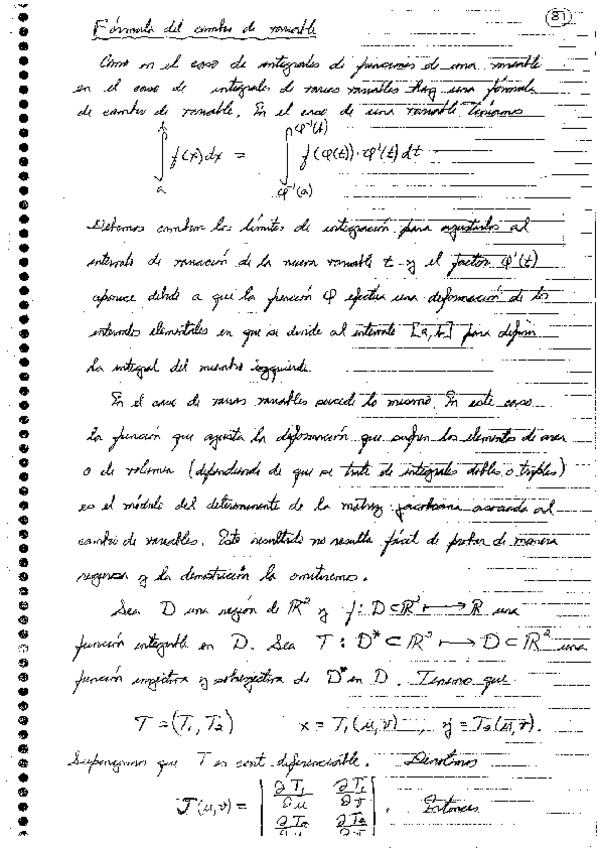 81
Fórmula del cambio de variable
Como en el caso de integrales de funciones de una variable
en el caso de integrales de varias variables hay una fórmula
de cambio de variable. En el caso de una variable teníamos
∫_a^b f(x)dx = ∫_{φ⁻¹(a)}^{φ⁻¹(b)} f(φ(t))·φ'(t)dt
Debemos cambiar los límites de integración para ajustarlos al
intervalo de variación de la nueva variable t y el factor φ'(t)
aparece debido a que la función φ efectúa una deformación de los
intervalos elementales en que se divide al intervalo [a,b] para definir
la integral del miembro izquierdo.
En el caso de varias variables sucede lo mismo. En este caso
la función que ajusta la deformación que sufren los elementos de area
o de volumen (dependiendo de que se trate de integrales dobles o triples)
es el módulo del determinante de la matriz jacobiana asociada al
cambio de variables. Este resultado no resulta fácil de probar de manera
rigurosa y la demostración la omitiremos.
Sea D una región de ℝ² y f: D⊂ℝ² ⟼ ℝ una
función integrable en D. Sea T: D*⊂ℝ² ⟼ D⊂ℝ² una
función inyectiva y sobreyectiva de D* en D. Tenemos que
T=(T₁,T₂) x=T₁(u,v), y=T₂(u,v).
Supongamos que T es cont. diferenciable. Denotamos
J(u,v)= | ∂T₁/∂u ∂T₁/∂v | . Entonces
| ∂T₂/∂u ∂T₂/∂v |